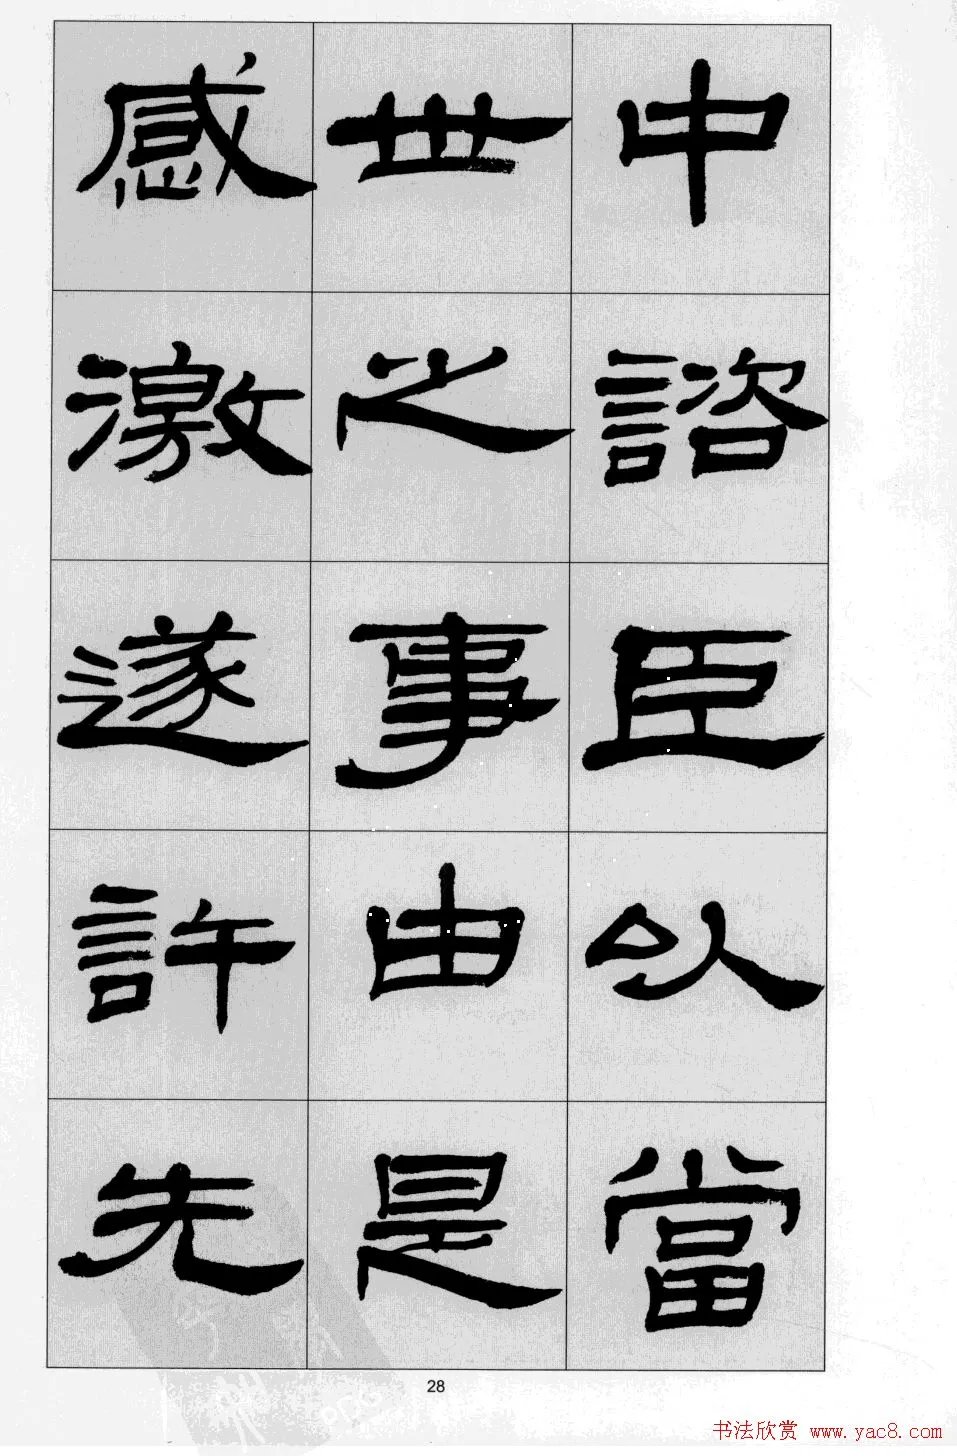 中諮臣以當
世之事由是
感激遂許先
28
书法欣赏 www.yac8.com